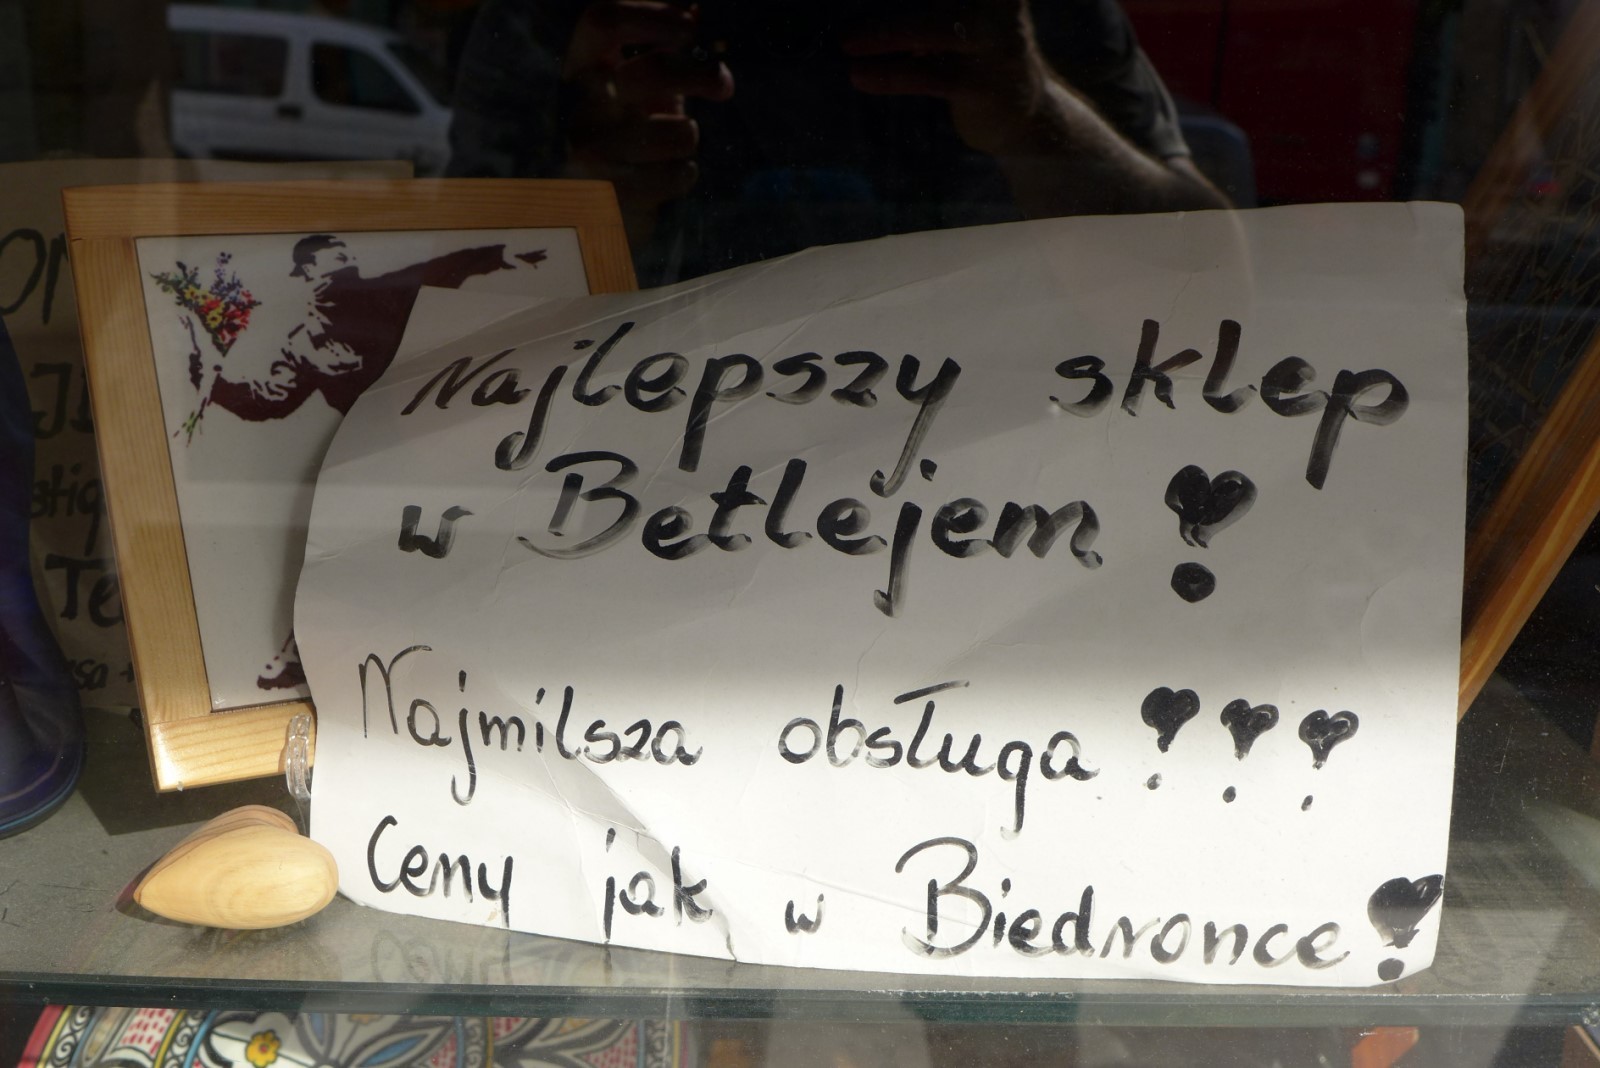 Najlepszy sklep
w Betlejem!
Najmilsza obsługa!!!
Ceny jak w Biedronce!